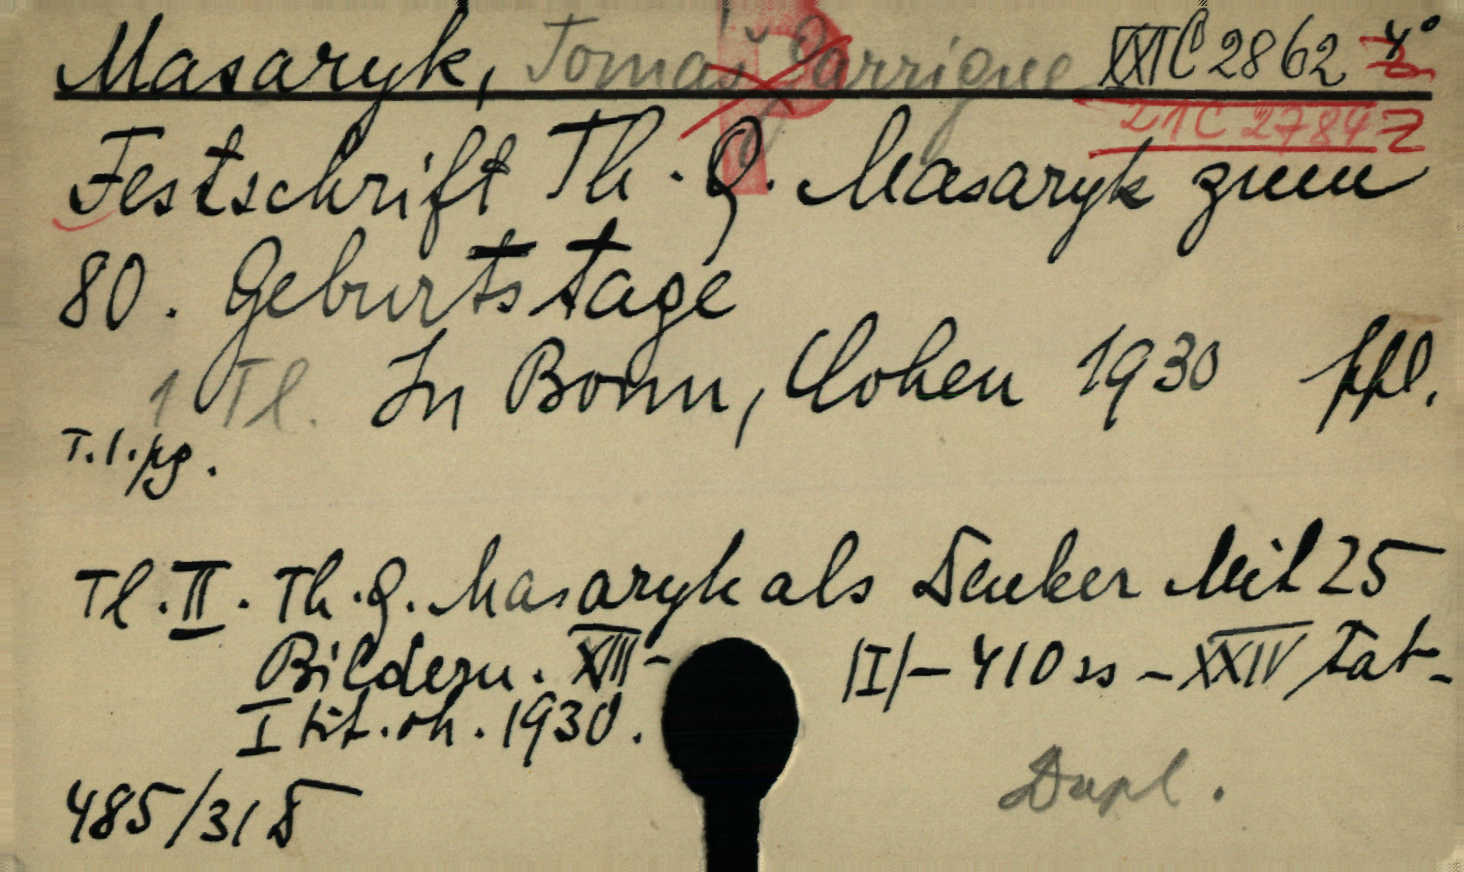 Masaryk, Tomáš Garrigue XXI C 2862 4°
21 C 2784 Z
Festschrift Th. G. Masaryk zum
80. Geburtstage
1 Tl. In Bonn, Cohen 1930 ppl.
T. I. pg.
Tl. II. Th. G. Masaryk als Denker Mit 25
Bildern. XIII- |I|-410 ss -XXIV tab-
I tit. oh. 1930.
485/31 D
Dupl.